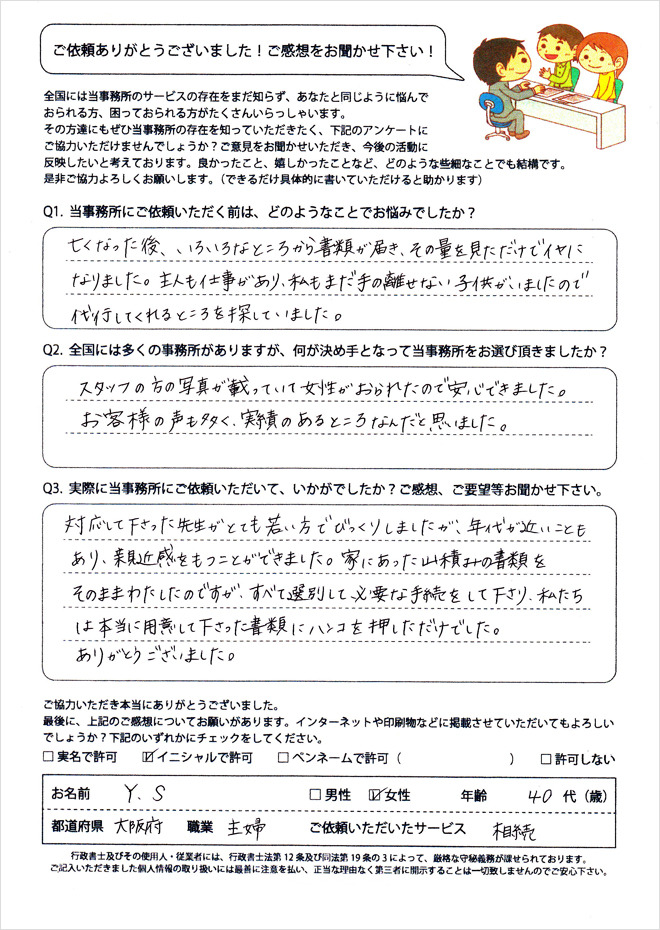 ご依頼ありがとうございました！ご感想をお聞かせ下さい！
全国には当事務所のサービスの存在をまだ知らず、あなたと同じように悩んで
おられる方、困っておられる方がたくさんいらっしゃいます。
その方達にもぜひ当事務所の存在を知っていただきたく、下記のアンケートに
ご協力いただけませんでしょうか？ご意見をお聞かせいただき、今後の活動に
反映したいと考えております。良かったこと、嬉しかったことなど、どのような些細なことでも結構です。
是非ご協力よろしくお願いします。（できるだけ具体的に書いていただけると助かります）
Q1. 当事務所にご依頼いただく前は、どのようなことでお悩みでしたか？
亡くなった後、、いろいろなところから書類が届き、その量を見ただけでイヤに
なりました。主人も仕事があり、私もまだ手の離せない子供がいましたので
代行してくれるところを探していました。
Q2. 全国には多くの事務所がありますが、何が決め手となって当事務所をお選び頂きましたか？
スタッフの方の写真が載っていて女性がおられたので安心できました。
お客様の声も多く、実績のあるところなんだと思いました。
Q3. 実際に当事務所にご依頼いただいて、いかがでしたか？ご感想、ご要望等お聞かせ下さい。
対応して下さった先生がとても若い方でびっくりしましたが、年代が近いことも
あり、親近感をもつことができました。家にあった山積みの書類を
そのままわたしたのですが、すべて選別して必要な手続をして下さり、私たち
は本当に用意して下さった書類にハンコを押しただけでした。
ありがとうございました。
ご協力いただき本当にありがとうございました。
最後に、上記のご感想についてお願いがあります。インターネットや印刷物などに掲載させていただいてもよろしい
でしょうか？下記のいずれかにチェックをしてください。
□ 実名で許可 ☑ イニシャルで許可 □ ペンネームで許可（ ） □ 許可しない
お名前 Y. S □ 男性 ☑ 女性 年齢 40 代（歳）
都道府県 大阪府 職業 主婦 ご依頼いただいたサービス 相続
行政書士及びその使用人・従業者には、行政書士法第12条及び同法第19条の3によって、厳格な守秘義務が課せられております。
ご記入いただきました個人情報の取り扱いには最善に注意を払い、正当な理由なく第三者に開示することは一切致しませんのでご安心下さい。